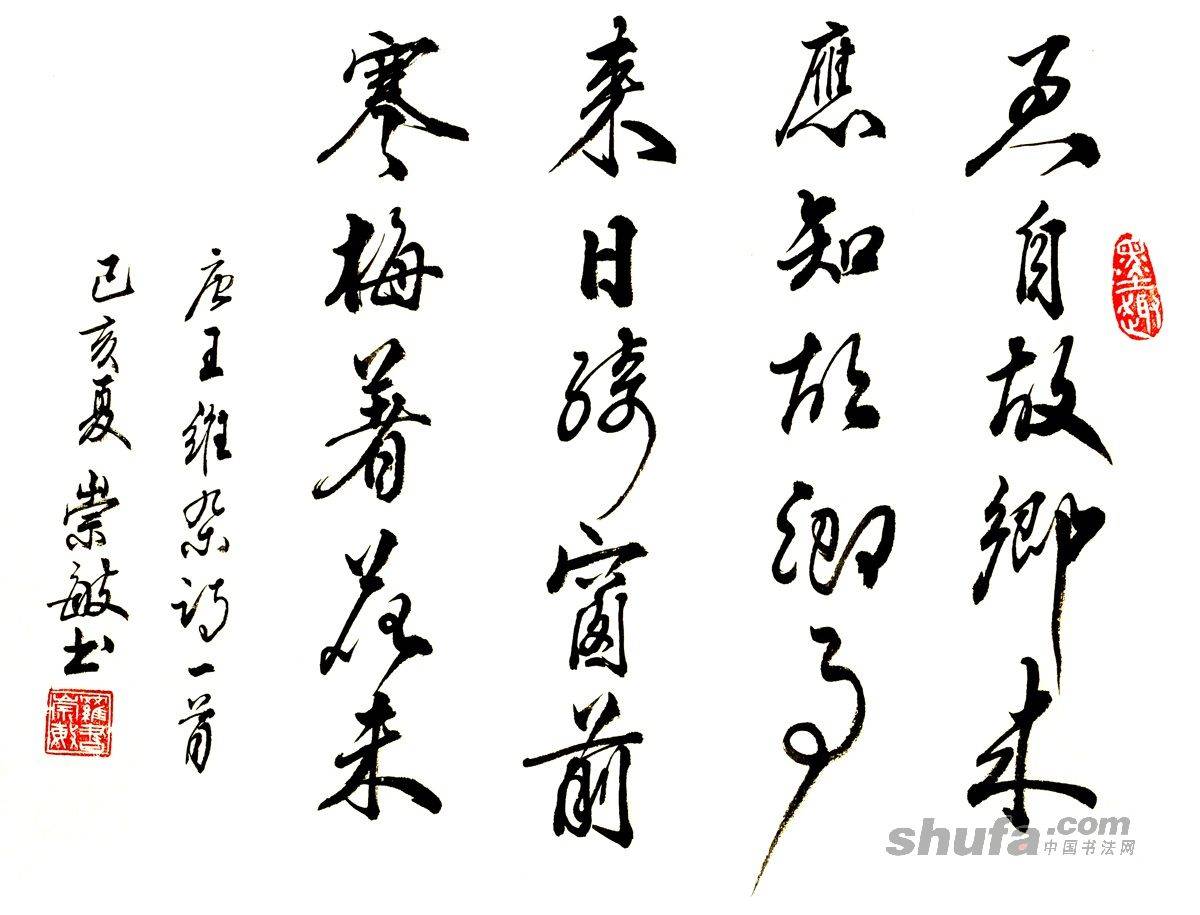 君自故鄉来
應知故鄉事
来日綺窗前
寒梅著花未
唐王維杂詩一首
己亥夏崇敏书
墨趣
shufa.com
中国书法网